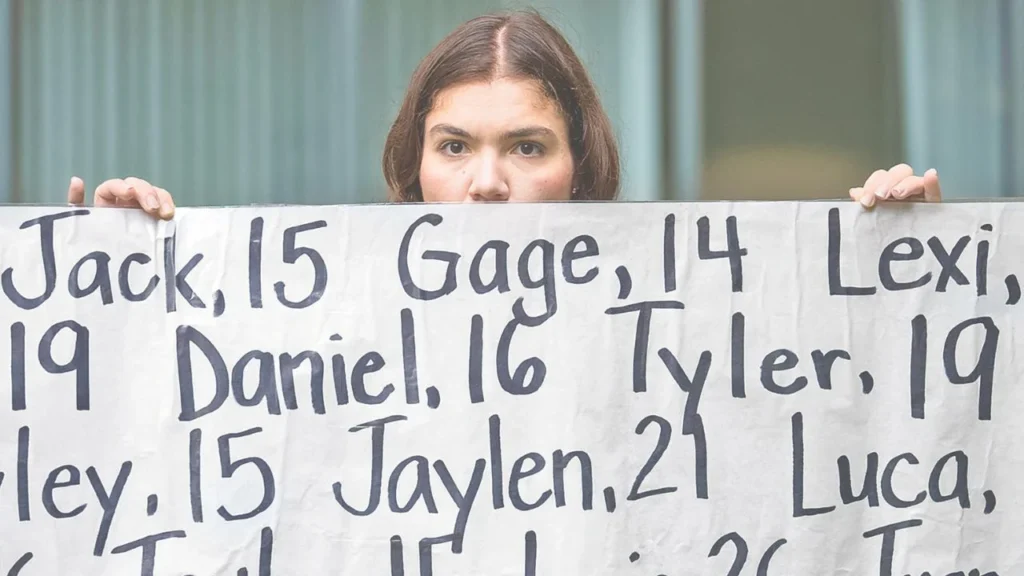 Jack, 15 Gage, 14 Lexi,
19 Daniel, 16 Tyler, 19
ley, 15 Jaylen, 21 Luca,